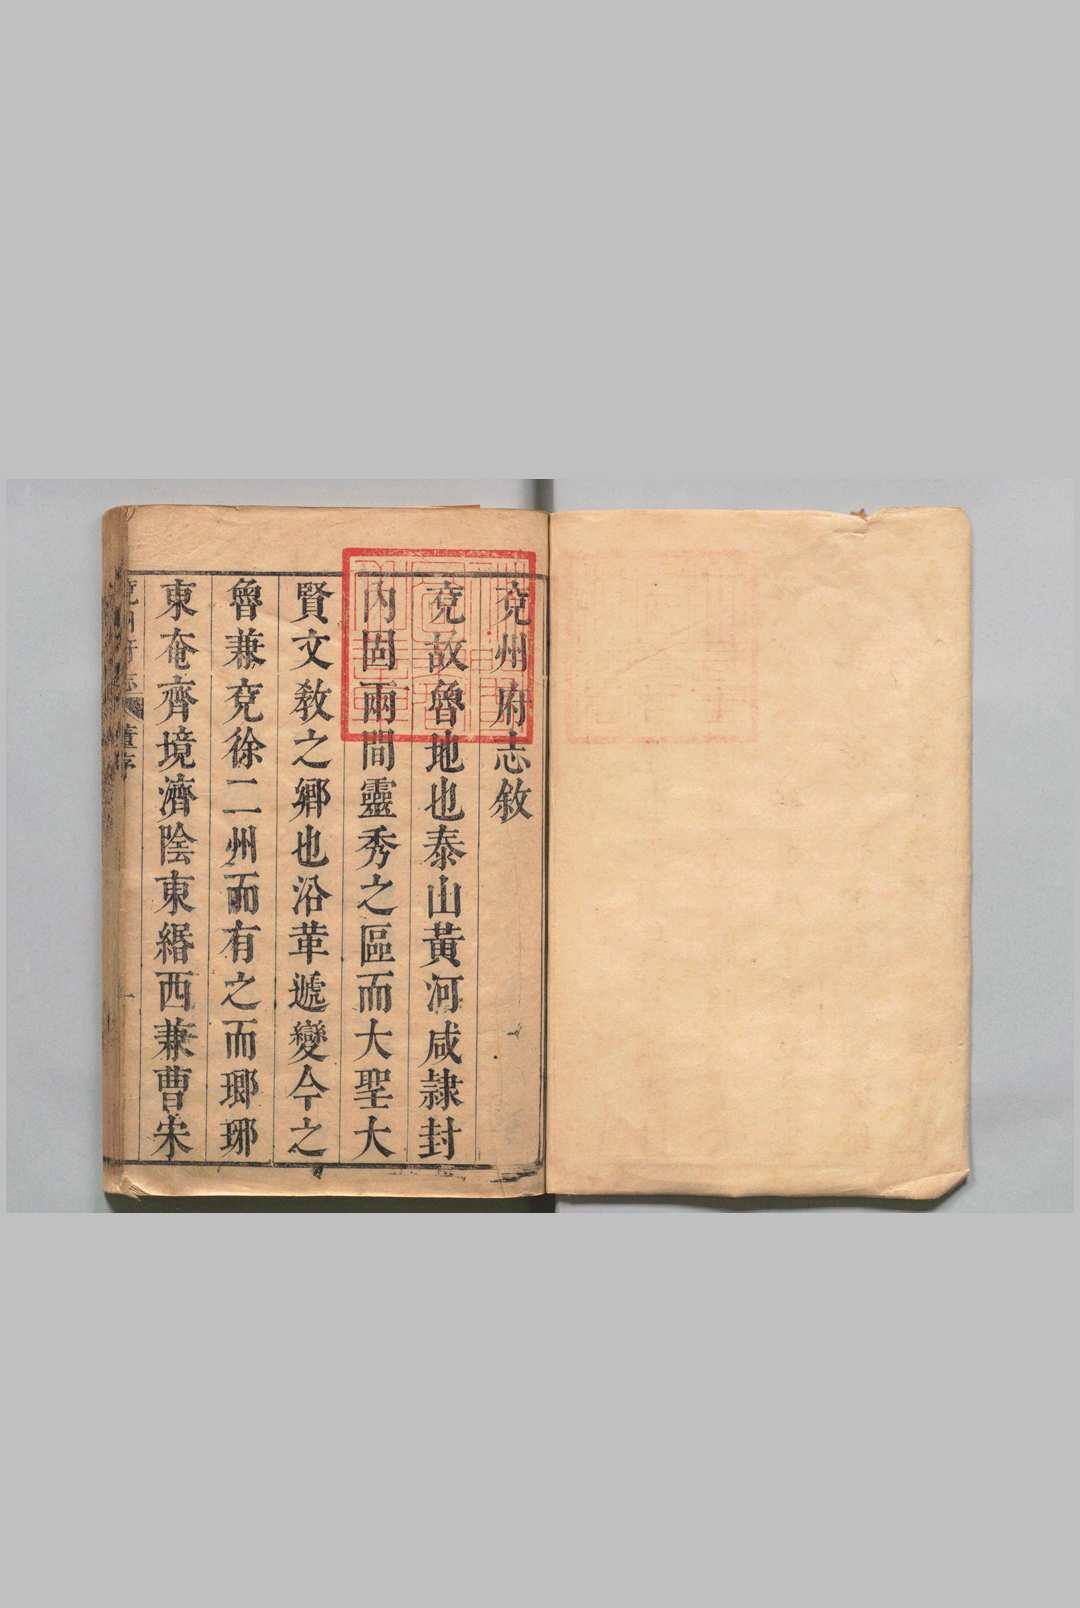 兗州府志敘
兗故魯地也泰山黃河咸隷封
內固兩間靈秀之區而大聖大
賢文敎之鄉也沿革遞變今之
魯兼兗徐二州而有之而瑯琊
東奄齊境濟陰東緡西兼曹宋
兗州府志
董序
一